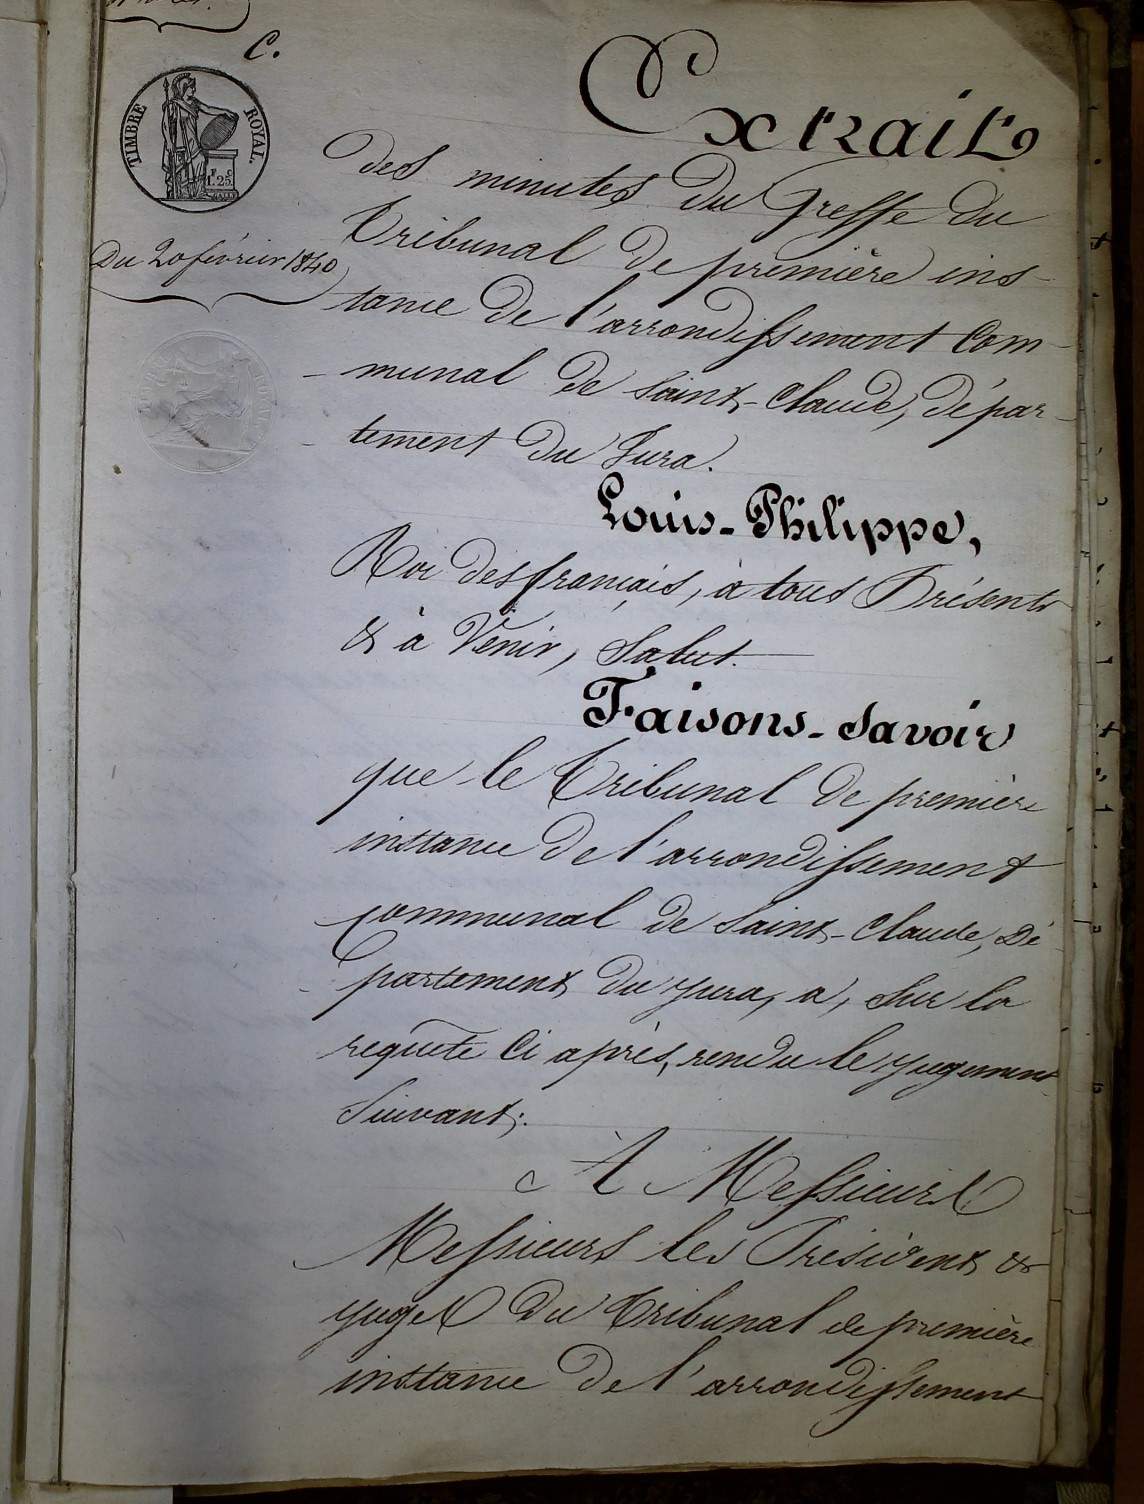 C.
TIMBRE ROYAL.
F C
1. 25
Du 20 février 1840
Extrait
des minutes du Greffe du
Tribunal de première ins-
tance de l'arrondissement Com-
-munal de Saint-Claude, dépar-
-tement du Jura.
Louis-Philippe,
Roi des français, à tous Présents
& à Venir, Salut.
Faisons-savoir
que le Tribunal de première
instance de l'arrondissement
communal de Saint-Claude, Dé-
-partement du Jura, a, sur la
requête ci après, rendu le jugement
Suivant:
A Messieurs
Messieurs les Président &
juges du Tribunal de première
instance de l'arrondissement